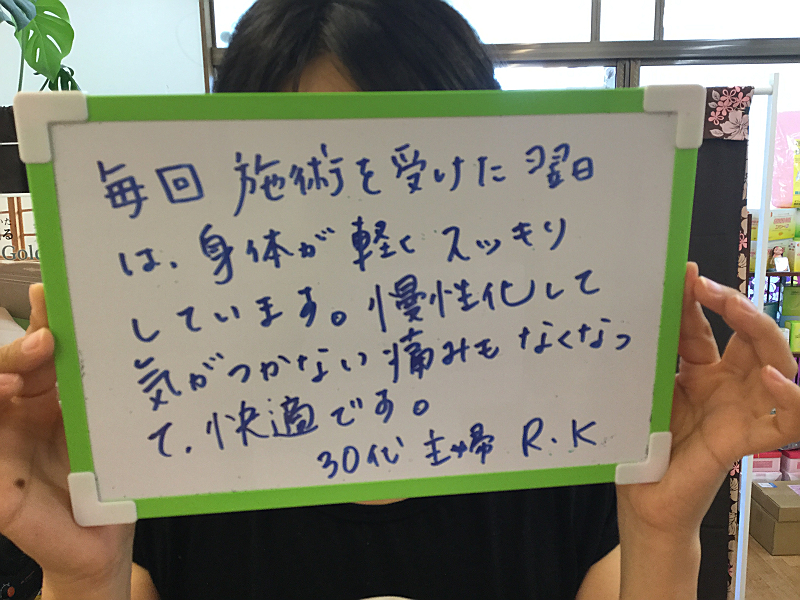 毎回 施術を受けた翌日
は、身体が軽くスッキリ
しています。慢性化して
気がつかない痛みもなくなっ
て、快適です。
30代 主婦 R.K
Gold